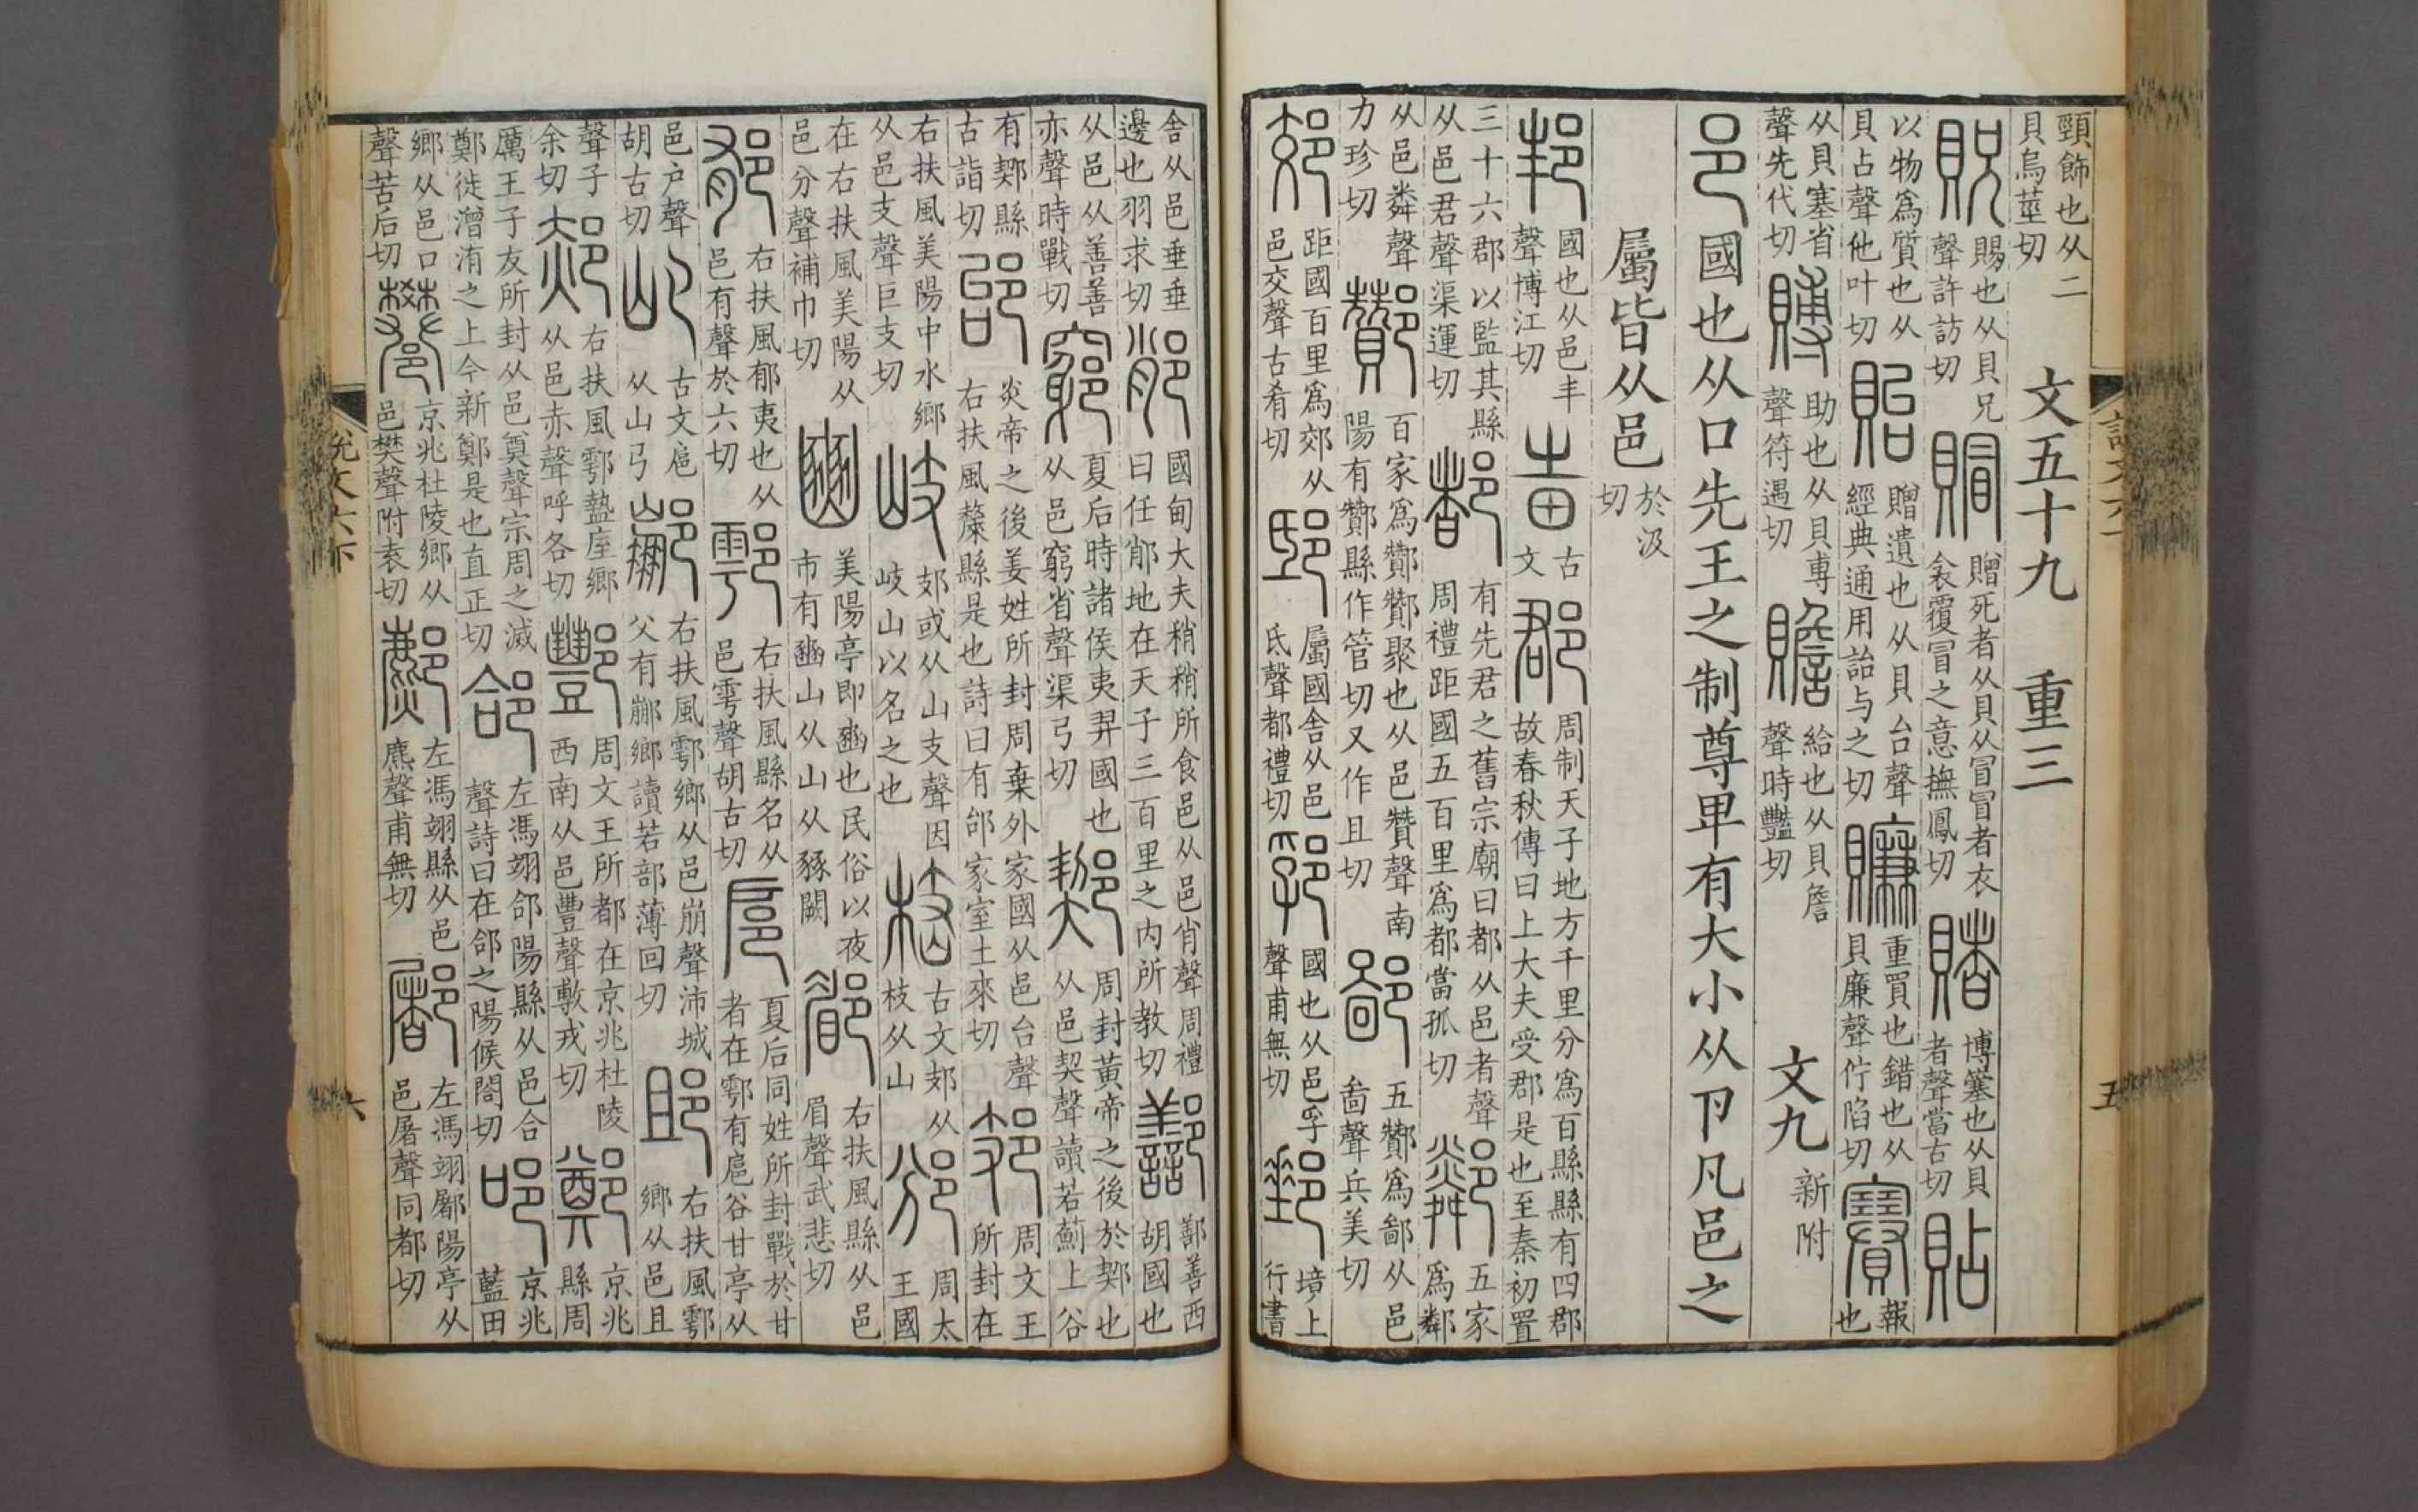 頸飾也从二貝烏莖切 文五十九 重三
貺賜也从貝兄聲許訪切賵贈死者从貝从冒冒者衣衾覆冒之意撫鳳切賭博簺也从貝者聲當古切貼
以物爲質也从貝占聲他叶切貽贈遺也从貝台聲經典通用詒与之切賺重買也錯也从貝廉聲佇陷切賽報也
从貝塞省聲先代切賻助也从貝尃聲符遇切贍給也从貝詹聲時豔切 文九 新附
邑國也从口先王之制尊卑有大小从卪凡邑之
屬皆从邑於汲切
邦國也从邑丰聲博江切𤰫古文郡周制天子地方千里分爲百縣縣有四郡故春秋傳曰上大夫受郡是也至秦初置
三十六郡以監其縣从邑君聲渠運切都有先君之舊宗廟曰都从邑者聲周禮距國五百里爲都當孤切鄰五家爲鄰
从邑粦聲力珍切酇百家爲酇酇聚也从邑贊聲南陽有酇縣作管切又作旦切鄙五酇爲鄙从邑啚聲兵美切
郊距國百里爲郊从邑交聲古肴切邸屬國舍从邑氐聲都禮切郛國也从邑孚聲甫無切郵境上行書
舍从邑垂垂邊也羽求切䣍國甸大夫稍稍所食邑从邑肖聲周禮曰任䣍地在天子三百里之内所教切鄯鄯善西胡國也
从邑从善善亦聲時戰切竆夏后時諸侯夷羿國也从邑窮省聲渠弓切䣠周封黃帝之後於䣠也从邑契聲讀若薊上谷
有䣠縣古詣切邰炎帝之後姜姓所封周棄外家國从邑台聲右扶風斄縣是也詩曰有邰家室土來切郊周文王所封在
右扶風美陽中水鄉从邑支聲巨支切岐郊或从山支聲因岐山以名之也𣖌古文郊从枝从山邠周太王國
在右扶風美陽从邑分聲補巾切豳美陽亭即豳也民俗以夜市有豳山从山从豩闕郿右扶風縣从邑眉聲武悲切
郁右扶風郁夷也从邑有聲於六切鄠右扶風縣名从邑雩聲胡古切扈夏后同姓所封戰於甘者在鄠有扈谷甘亭从
邑户聲胡古切𡵆古文扈从山弓𨟠右扶風鄠鄉从邑崩聲沛城父有𨟠鄉讀若部薄回切䢸右扶風鄠鄉从邑且
聲子余切郝右扶風鄠盩厔鄉从邑赤聲呼各切酆周文王所都在京兆杜陵西南从邑豐聲敷戎切鄭京兆縣周
厲王子友所封从邑奠聲宗周之滅鄭徙潧洧之上今新鄭是也直正切郃左馮翊郃陽縣从邑合聲詩曰在郃之陽候閤切叩京兆藍田
鄉从邑口聲苦后切𨞺京兆杜陵鄉从邑樊聲附袁切鄜左馮翊縣从邑麃聲甫無切𨝛左馮翊𨝛陽亭从邑屠聲同都切
説文六下 六